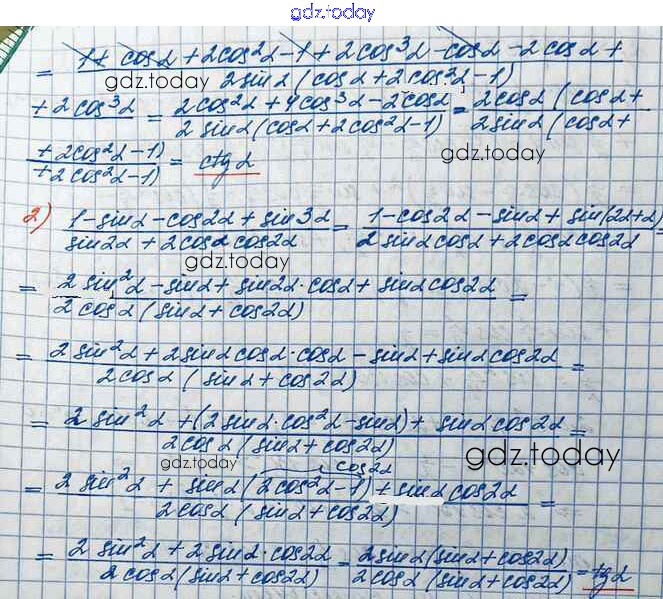 gdz.today
= (1 + cosα + 2cos²α - 1 + 2cos³α - cosα - 2cosα +) / (2sinα(cosα + 2cos²α - 1))
gdz.today
(+ 2cos³α) = (2cos²α + 4cos³α - 2cosα) / (2sinα(cosα + 2cos²α - 1)) = (2cosα(cosα +) / (2sinα(cosα +)
gdz.today
(+ 2cos²α - 1)) / (+ 2cos²α - 1)) = ctgα
2) (1 - sinα - cos2α + sin3α) / (sin2α + 2cosα cos2α) = (1 - cos2α - sinα + sin(2α+α)) / (2sinαcosα + 2cosαcos2α) =
gdz.today
= (2sin²α - sinα + sin2α·cosα + sinαcos2α) / (2cosα(sinα + cos2α)) =
= (2sin²α + 2sinαcosα·cosα - sinα + sinαcos2α) / (2cosα(sinα + cos2α)) =
= (2sin²α + (2sinα·cos²α - sinα) + sinαcos2α) / (2cosα(sinα + cos2α)) =
gdz.today
gdz.today
cos2α
= (2sin²α + sinα(2cos²α - 1) + sinαcos2α) / (2cosα(sinα + cos2α)) =
= (2sin²α + 2sinα·cos2α) / (2cosα(sinα + cos2α)) = (2sinα(sinα + cos2α)) / (2cosα(sinα + cos2α)) = tgα